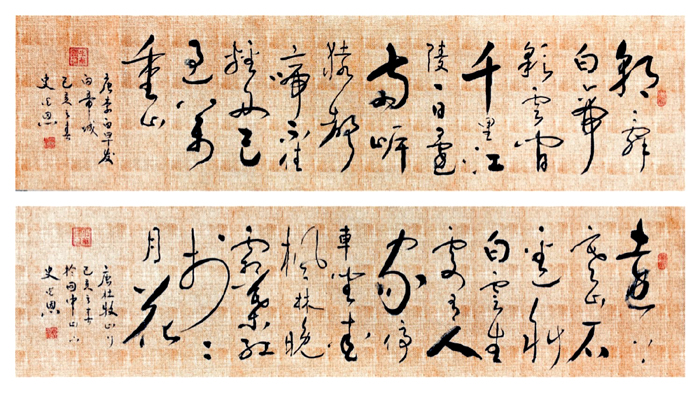 朝辭
白帝
彩雲間
千里江
陵一日還
兩岸
猿聲
啼不住
輕舟已
過萬
重山
唐李白早发
白帝城
己亥之春
史
遠上
寒山石
徑斜
白雲生
處有人
家停
車坐愛
楓林晚
霜葉紅
於二
月花
唐杜牧山行
己亥之春
史